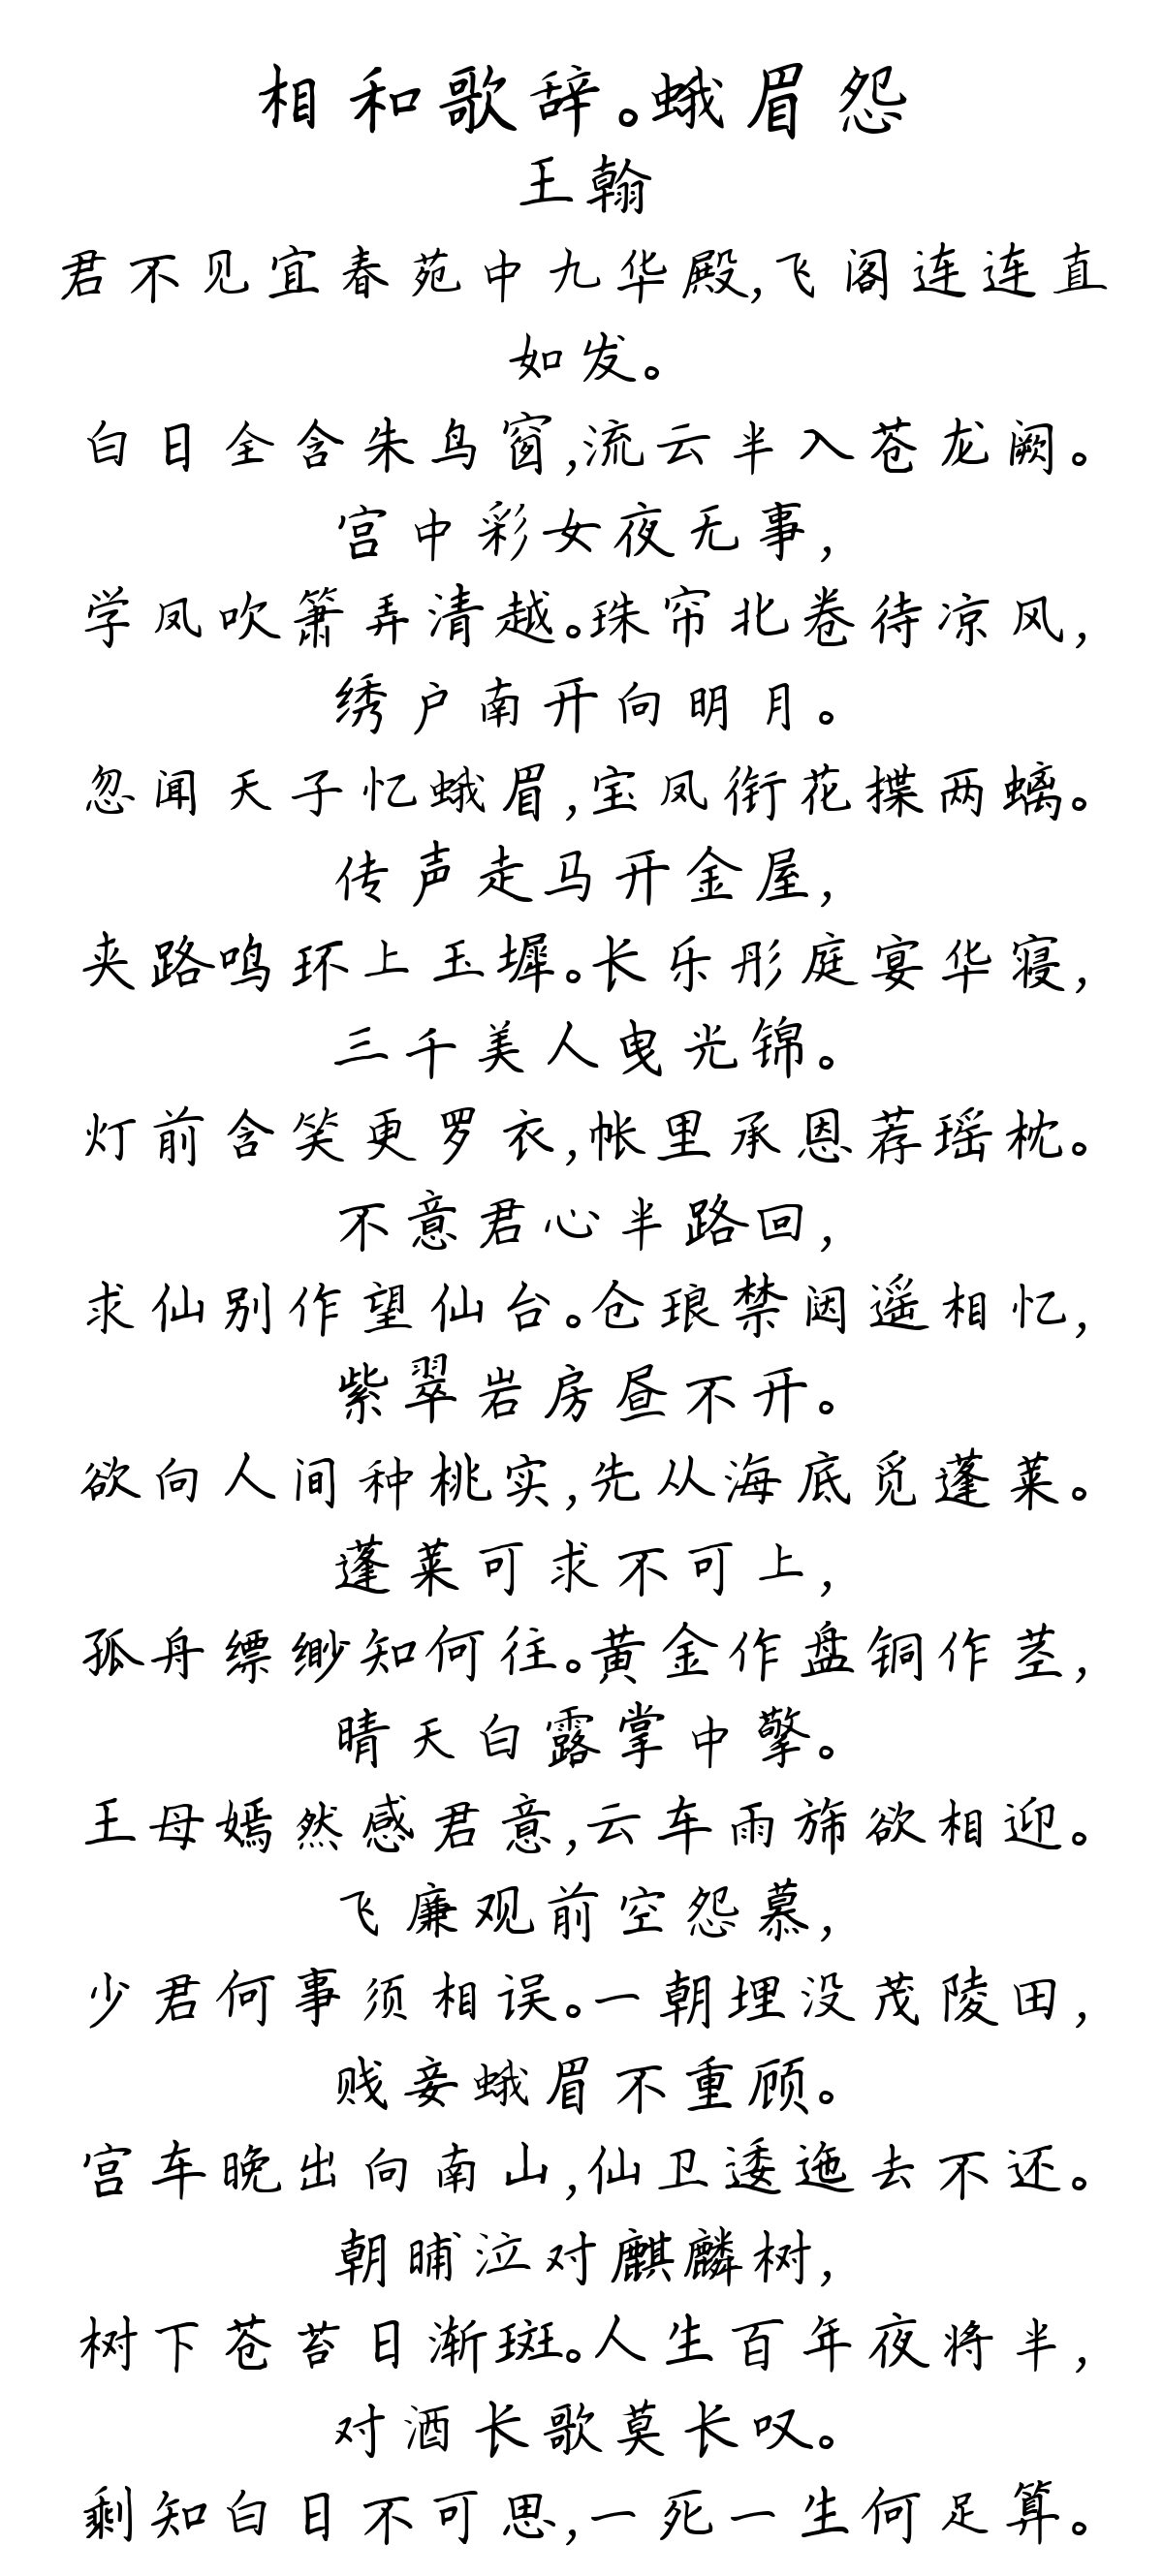 相和歌辞。蛾眉怨
王翰
君不见宜春苑中九华殿,飞阁连连直
如发。
白日全含朱鸟窗,流云半入苍龙阙。
宫中彩女夜无事,
学凤吹箫弄清越。珠帘北卷待凉风,
绣户南开向明月。
忽闻天子忆蛾眉,宝凤衔花揲两螭。
传声走马开金屋,
夹路鸣环上玉墀。长乐彤庭宴华寝,
三千美人曳光锦。
灯前含笑更罗衣,帐里承恩荐瑶枕。
不意君心半路回,
求仙别作望仙台。仓琅禁闼遥相忆,
紫翠岩房昼不开。
欲向人间种桃实,先从海底觅蓬莱。
蓬莱可求不可上,
孤舟缥缈知何往。黄金作盘铜作茎,
晴天白露掌中擎。
王母嫣然感君意,云车雨旆欲相迎。
飞廉观前空怨慕,
少君何事须相误。一朝埋没茂陵田,
贱妾蛾眉不重顾。
宫车晚出向南山,仙卫逶迤去不还。
朝晡泣对麒麟树,
树下苍苔日渐斑。人生百年夜将半,
对酒长歌莫长叹。
剩知白日不可思,一死一生何足算。